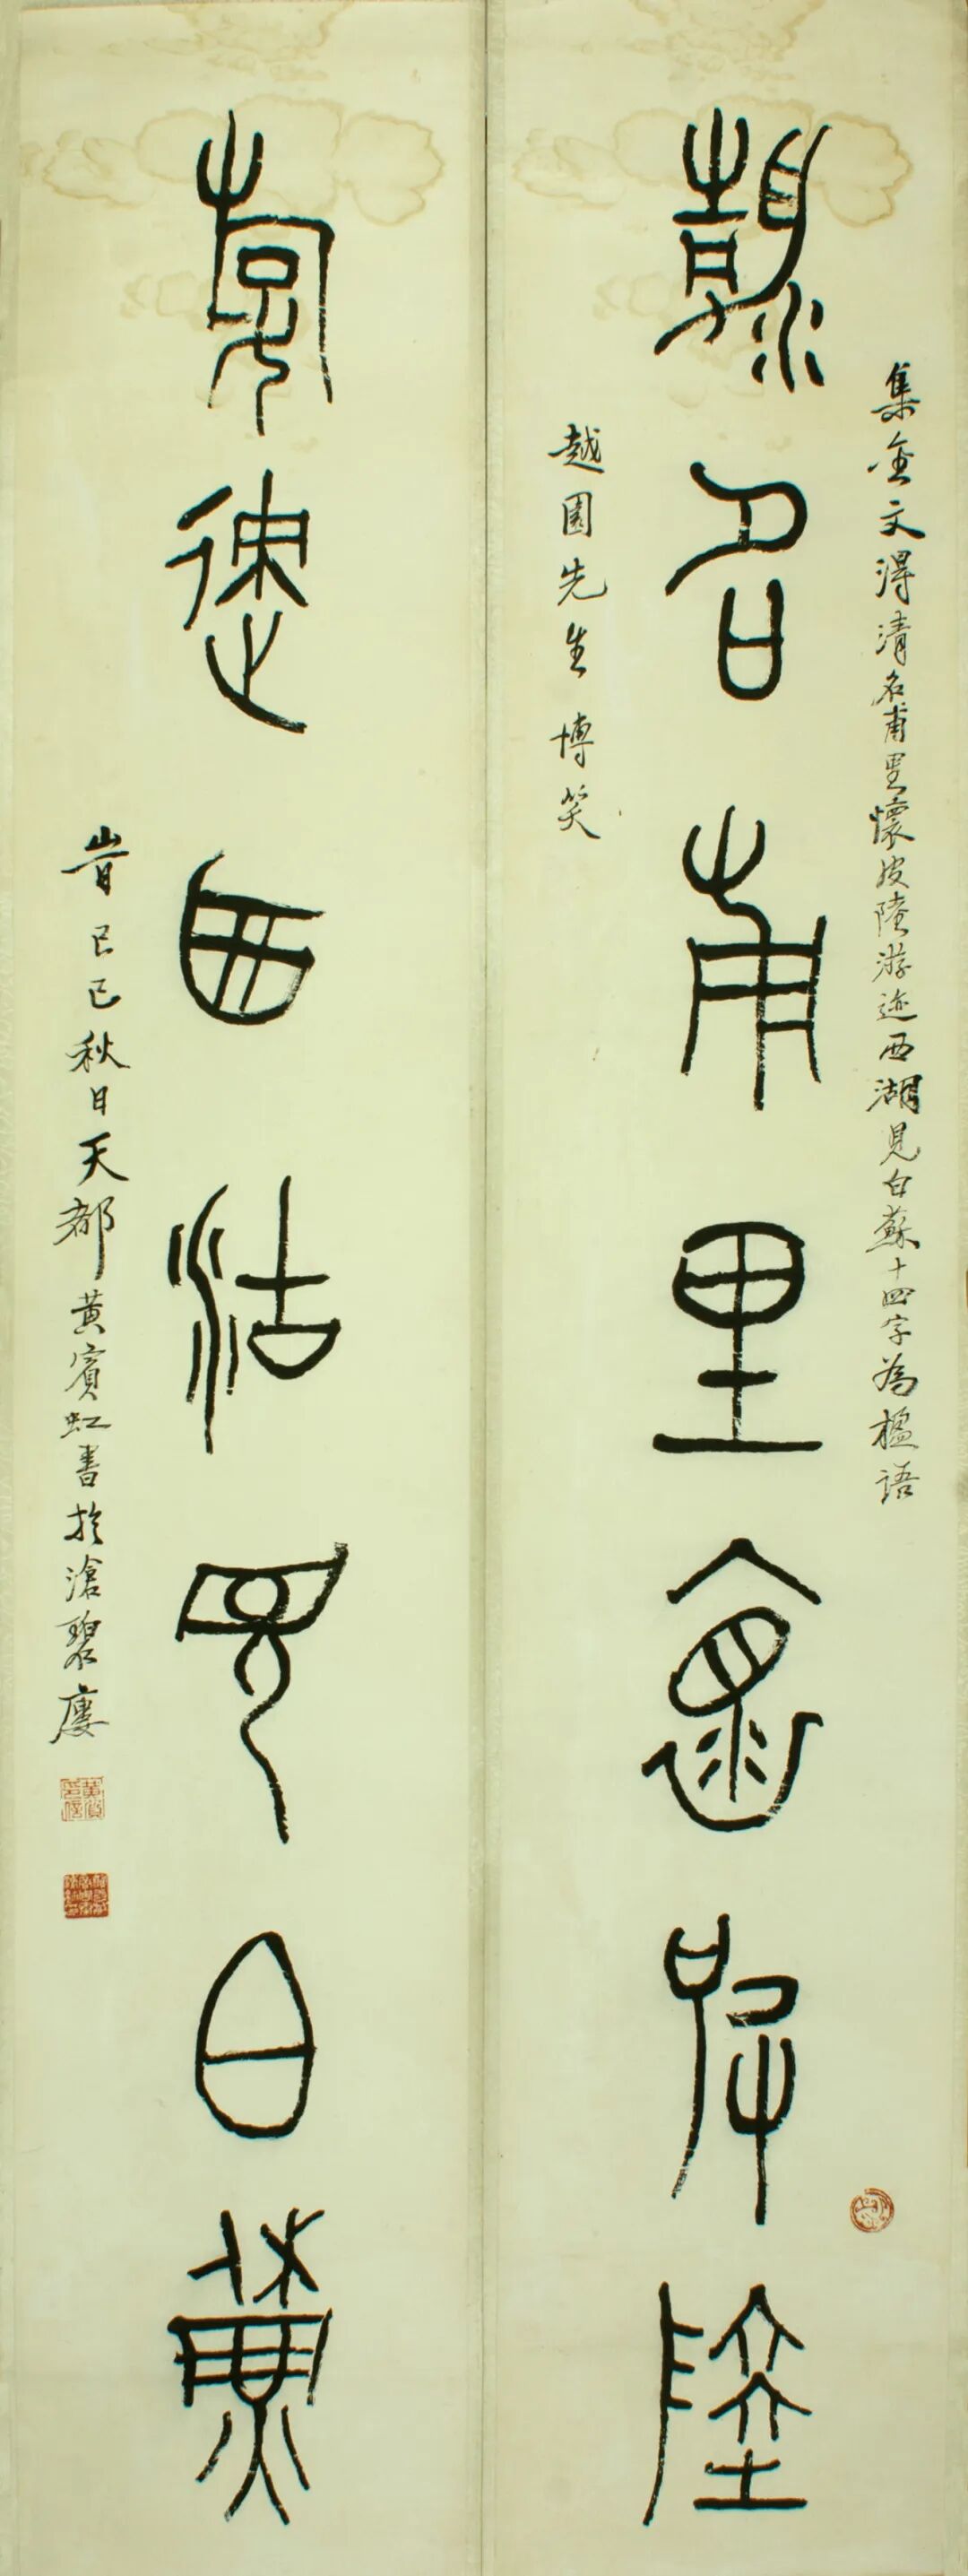 集金文得清名甫里懷皮陸游迹西湖見白蘇十四字為楹語
清名甫里懷皮陸
越園先生 博笑
游迹西湖見白蘇
時己巳秋日天都黃賓虹書於滄碧廔